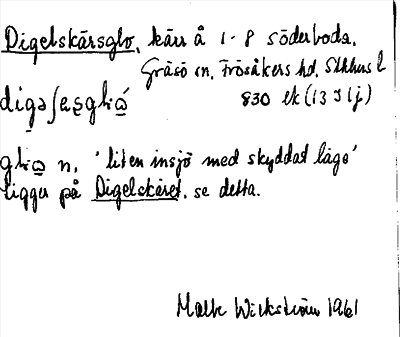 Digelskärsglo, kärr å 1-8 söderboda,
Gräsö sn, Frösåkers hd, Sthlms l
830 ek (13 I 1j)
digəʃæṣglώ̱
glω̱ n, 'liten insjö med skyddat läge'
ligger på Digelskäret, se detta.
Malte Wickström 1961